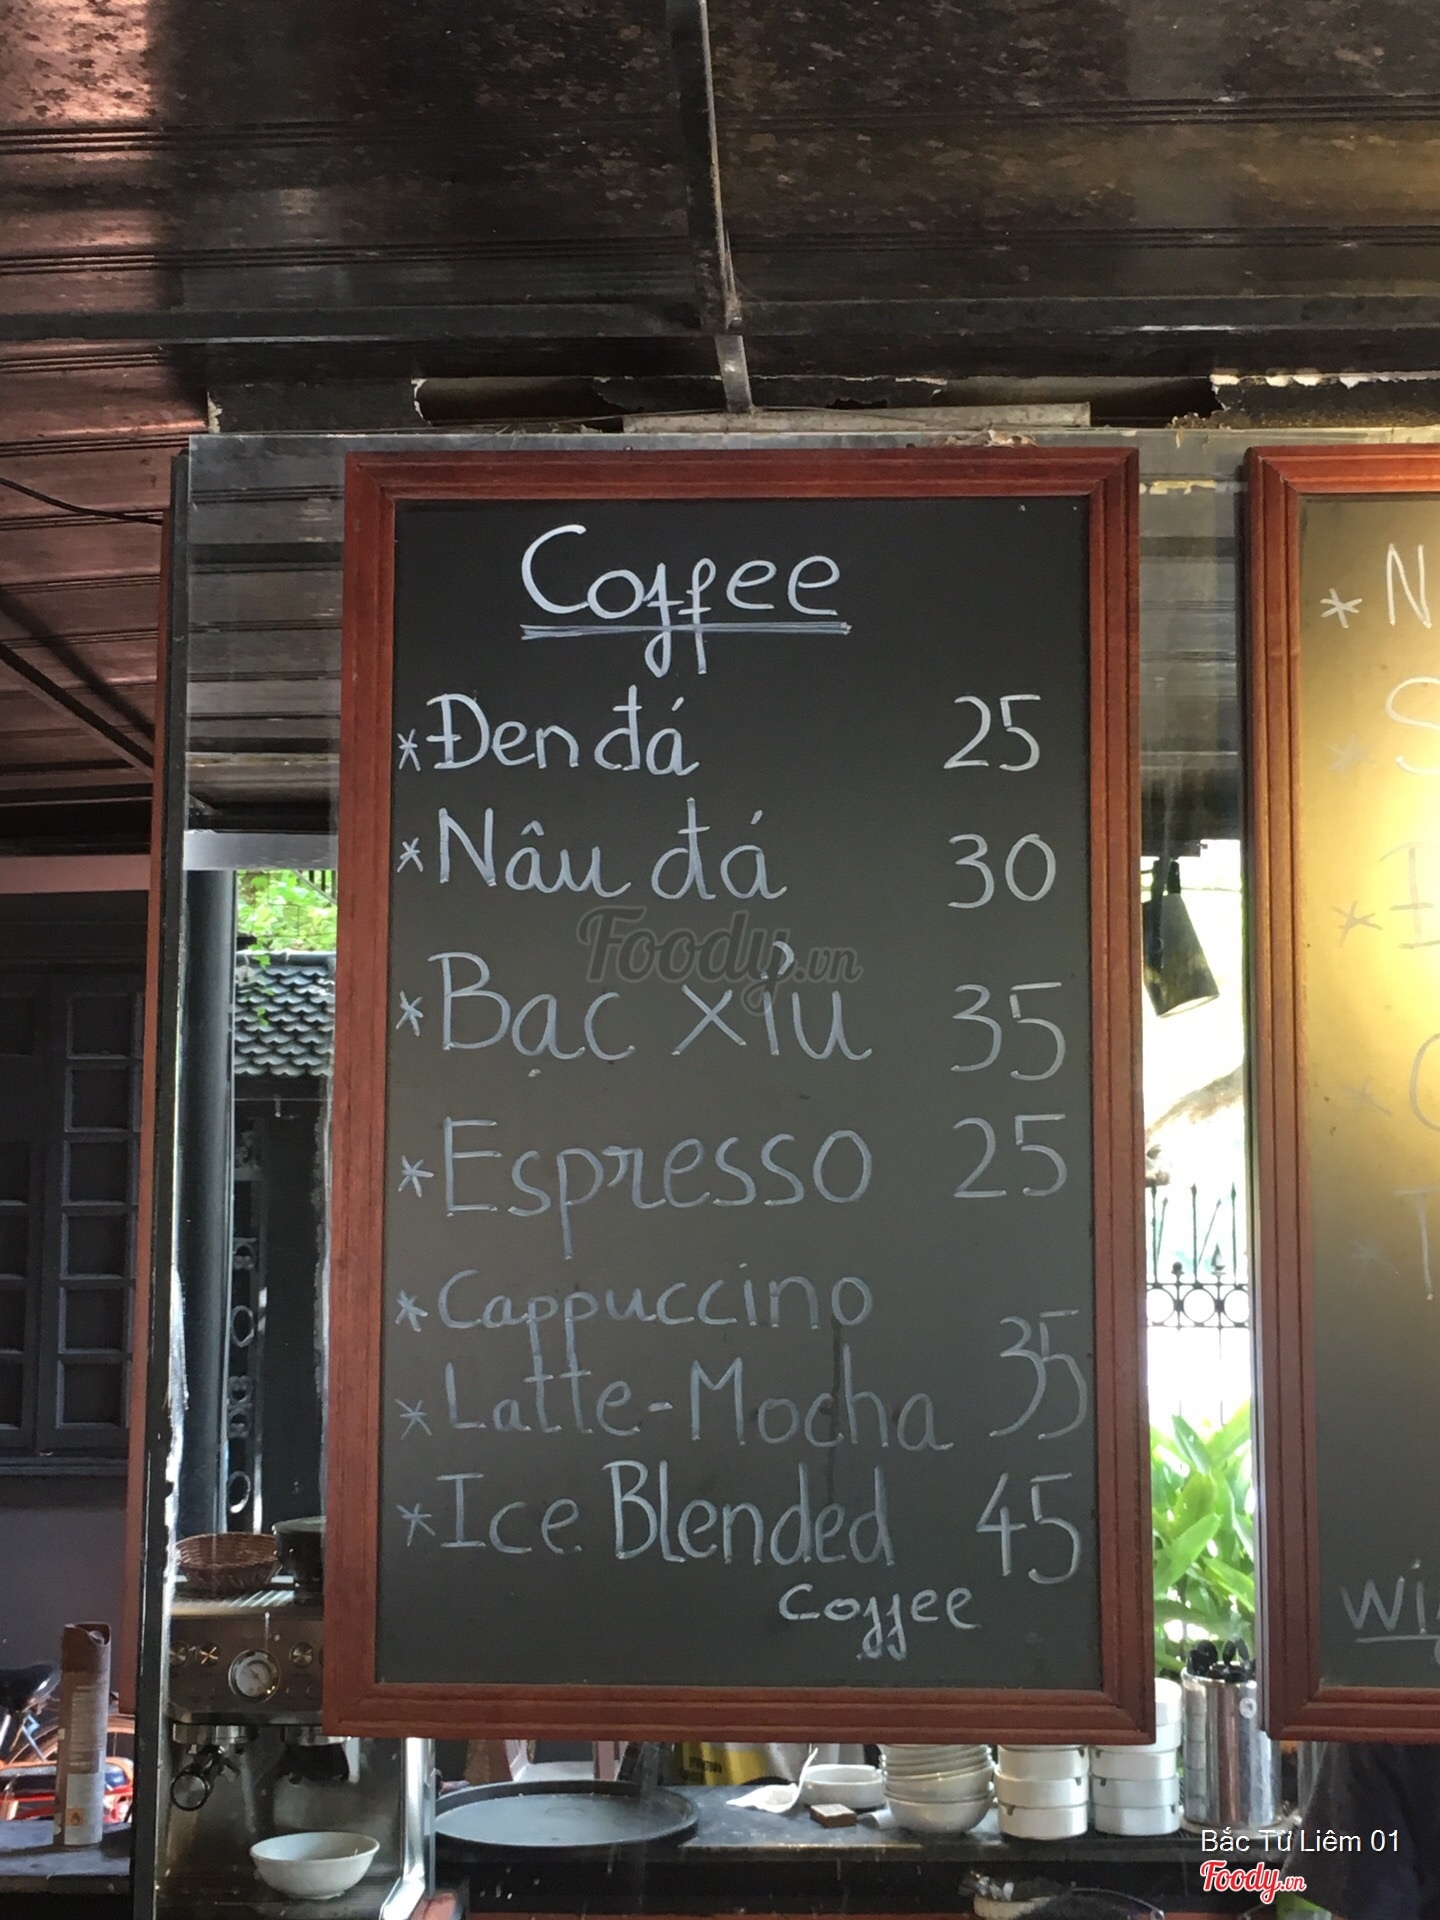 Coffee
* Đen đá 25
* Nâu đá 30
Foody.vn
* Bạc xỉu 35
* Espresso 25
* Cappuccino
* Latte-Mocha 35
* Ice Blended 45
coffee
Bắc Từ Liêm 01
Foody.vn